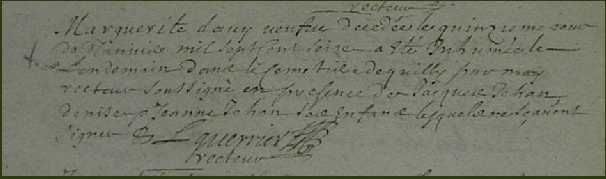 recteur
Marguerite davy veufve decedée le quinzieme jour
de Janvier mil sept cent seize a été Inhumée le
Lendemain dans le semetiere de quilly par moy
recteur soussigné en presence de Jacques Jehan
denise et Jeanne Jehan ses Enfans lesquels ne sçavent
signer L guerrier
recteur